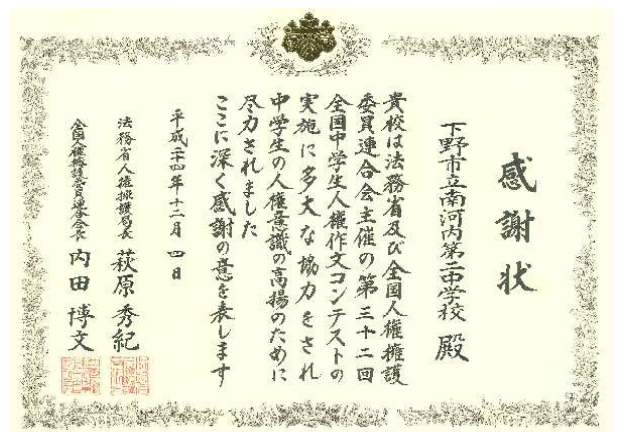 感謝状
下野市立南河内第二中学校 殿
貴校は法務省及び全国人権擁護
委員連合会主催の第三十二回
全国中学生人権作文コンテストの
実施に多大な協力をされ
中学生の人権意識の高揚のために
尽力されました
ここに深く感謝の意を表します
平成二十四年十二月 四日
法務省人権擁護局長 萩原秀紀
全国人権擁護委員連合会長 内田博文